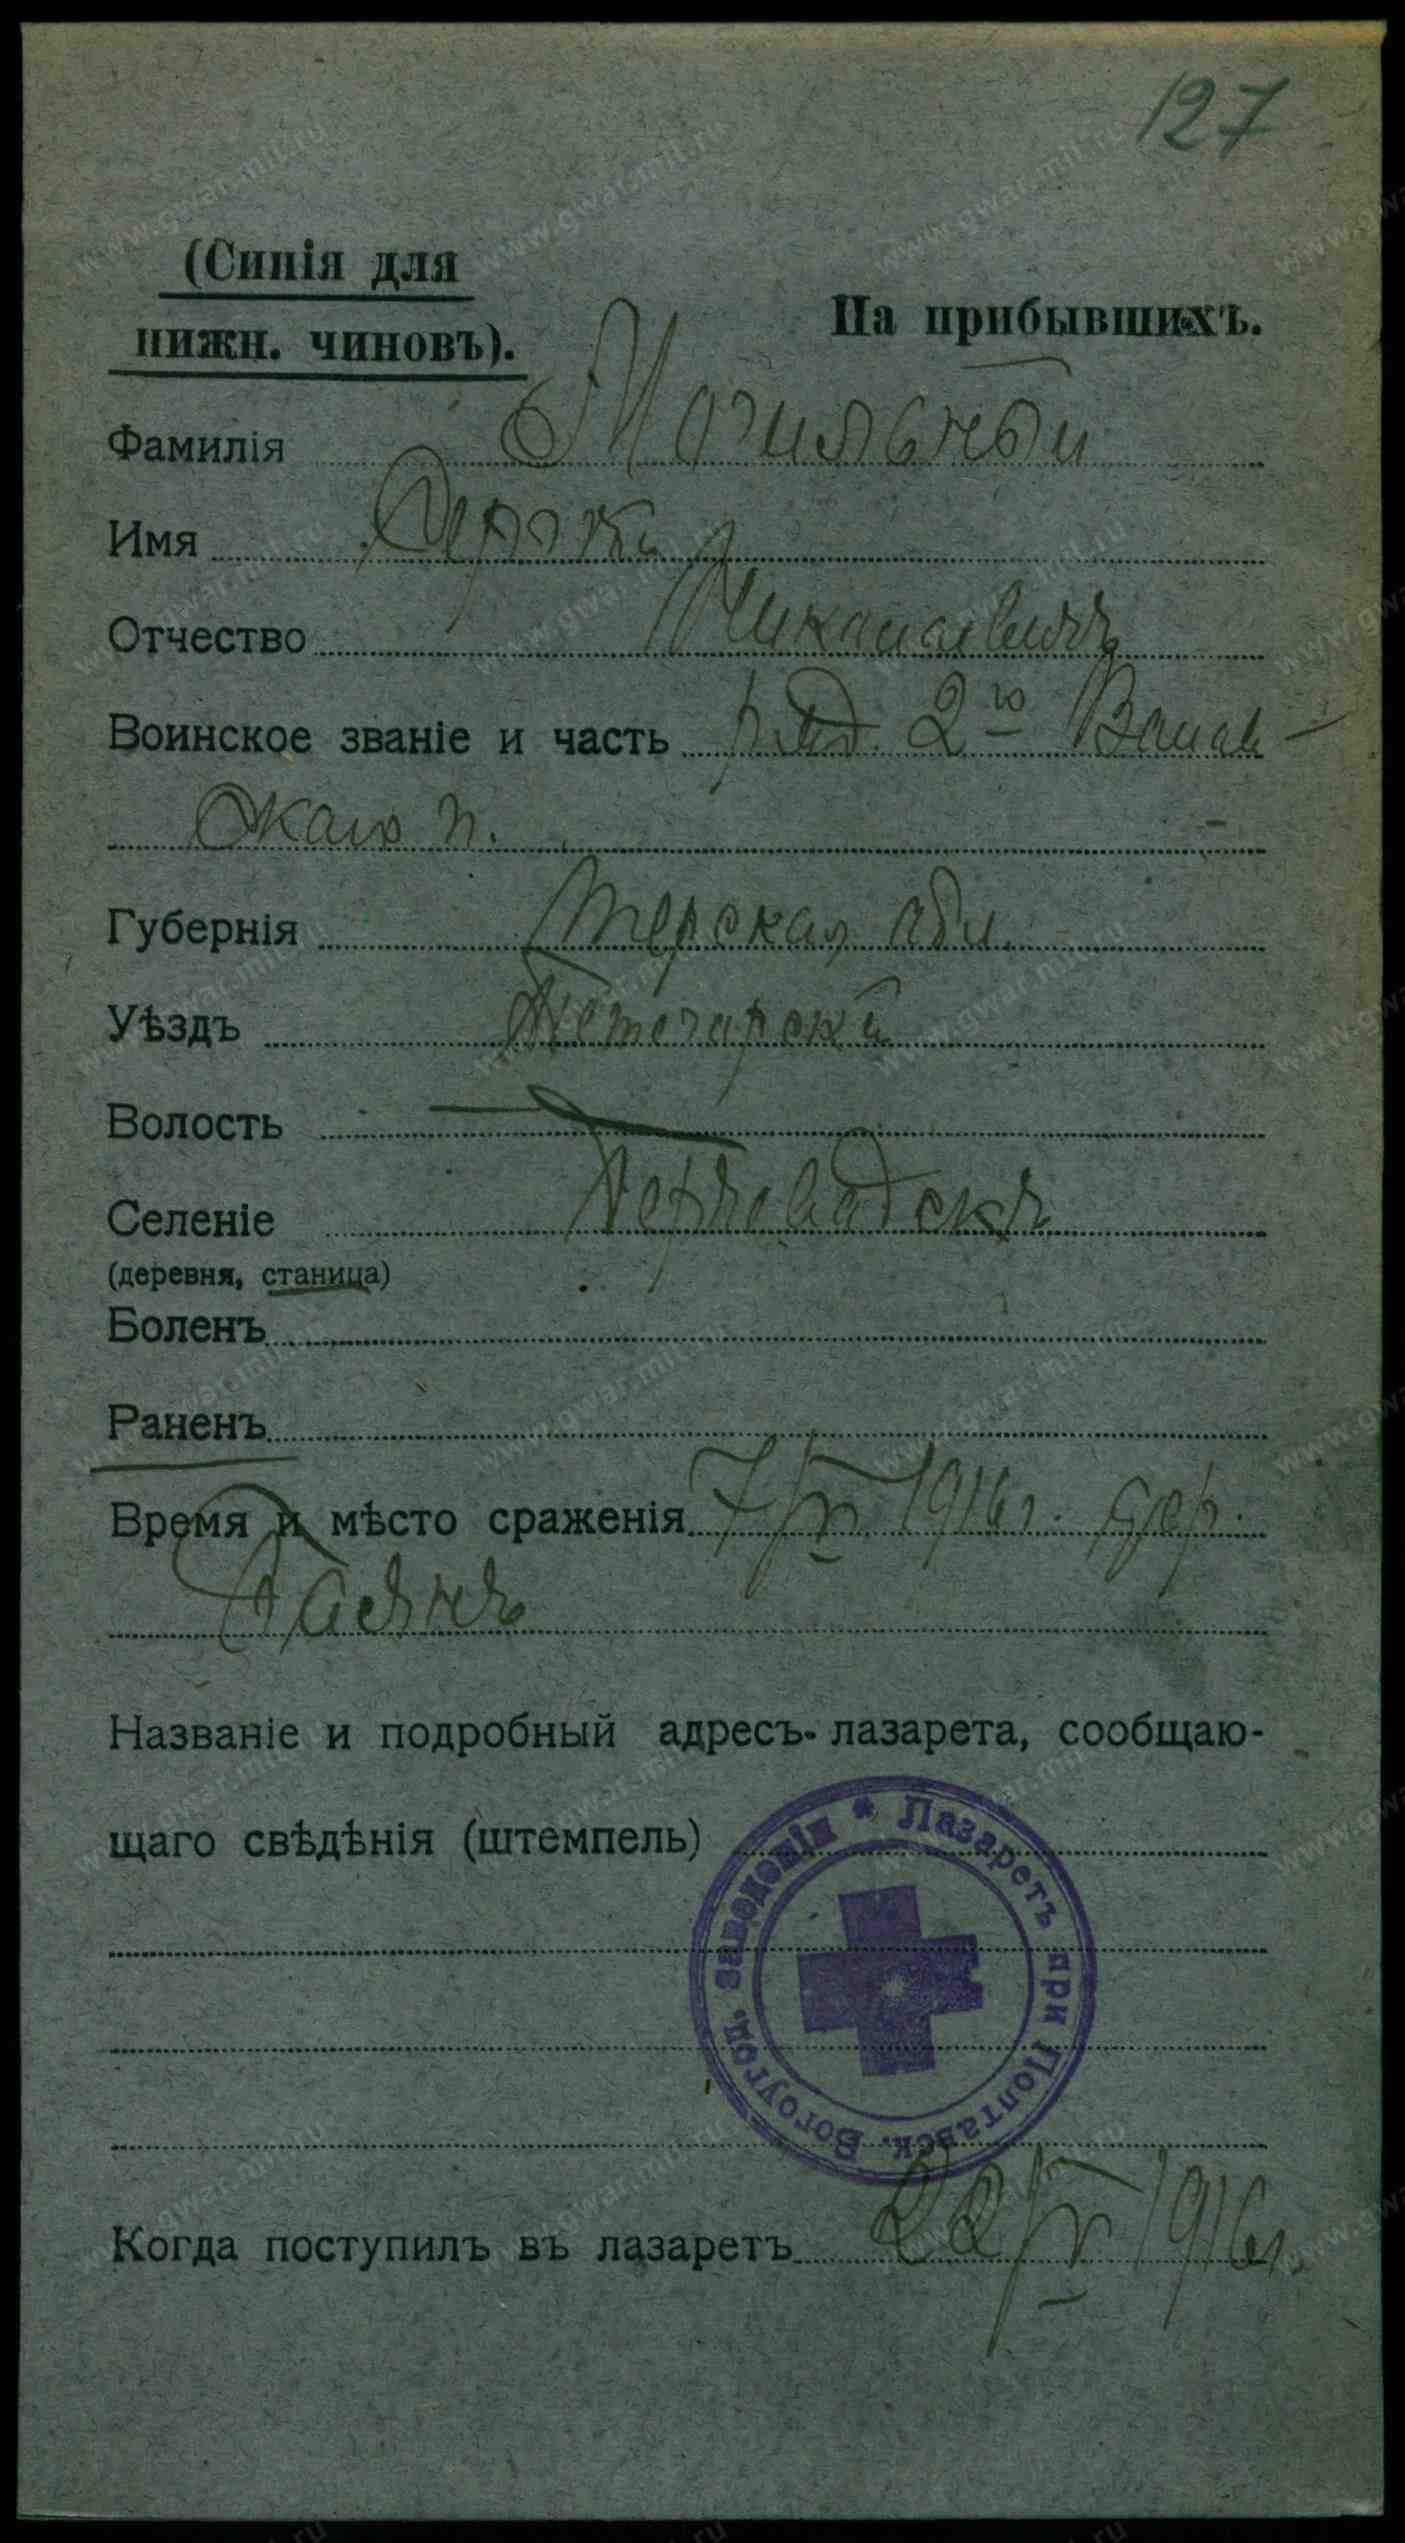 127
(Синія для
нижн. чиновъ).
На прибывшихъ.
Фамилія Могильный
Имя
Отчество Николаевичъ
Воинское званіе и часть ряд. 2го
скаго п.
Губернія Терская обл.
Уѣздъ
Волость —
Селеніе
(деревня, станица)
Боленъ
Раненъ
Время и мѣсто сраженія 7/V 1916г. дер.
Названіе и подробный адресъ лазарета, сообщаю-
щаго свѣдѣнія (штемпель)
Лазаретъ при Полтавск. Богоугод. заведеніи *
Когда поступилъ въ лазаретъ 22/V 1916г.
www.gwar.mil.ru